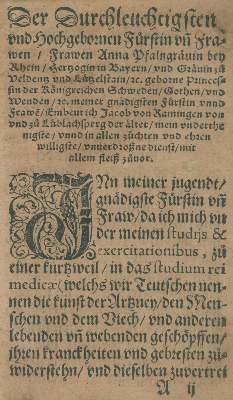 Der Durchleuchtigsten
vnd Hochgebornen Fürstin vñ Fra-
wen / Frawen Anna Pfalngräuin bey
Rhein / Hertzogin in Bayern / vnd Gräuin zu
Veldentz vnd Lützelstain / ꝛc. geborne Princes-
sin der Königreichen Schweden / Gothen / vnd
Wenden / ꝛc. meiner gnädigsten Fürstin vnnd
Frawẽ / Embeut ich Jacob von Ramingen von
vnd zů Lüblachsperg der älter / mein vnderthe
nigiste / vnnd in allen züchten vnd ehren
willigste / vnuerdroßne dienst / mit
allem fleiß zůuor.
INn meiner jugendt /
gnädigste Fürstin vñ
Fraw / da ich mich vn
der meinen studijs &
exercitationibus, zů
einer kurtzweil / in das studium rei
medicæ (welchs wir Teutschen nen-
nen die kunst der Artzney / den Men-
schen vnd dem Viech / vnd anderen
lebenden vñ webenden geschöpffen /
jhren kranckheiten vnd gebresten zů-
widerstehn / vnd dieselben zuvertrei
A ij